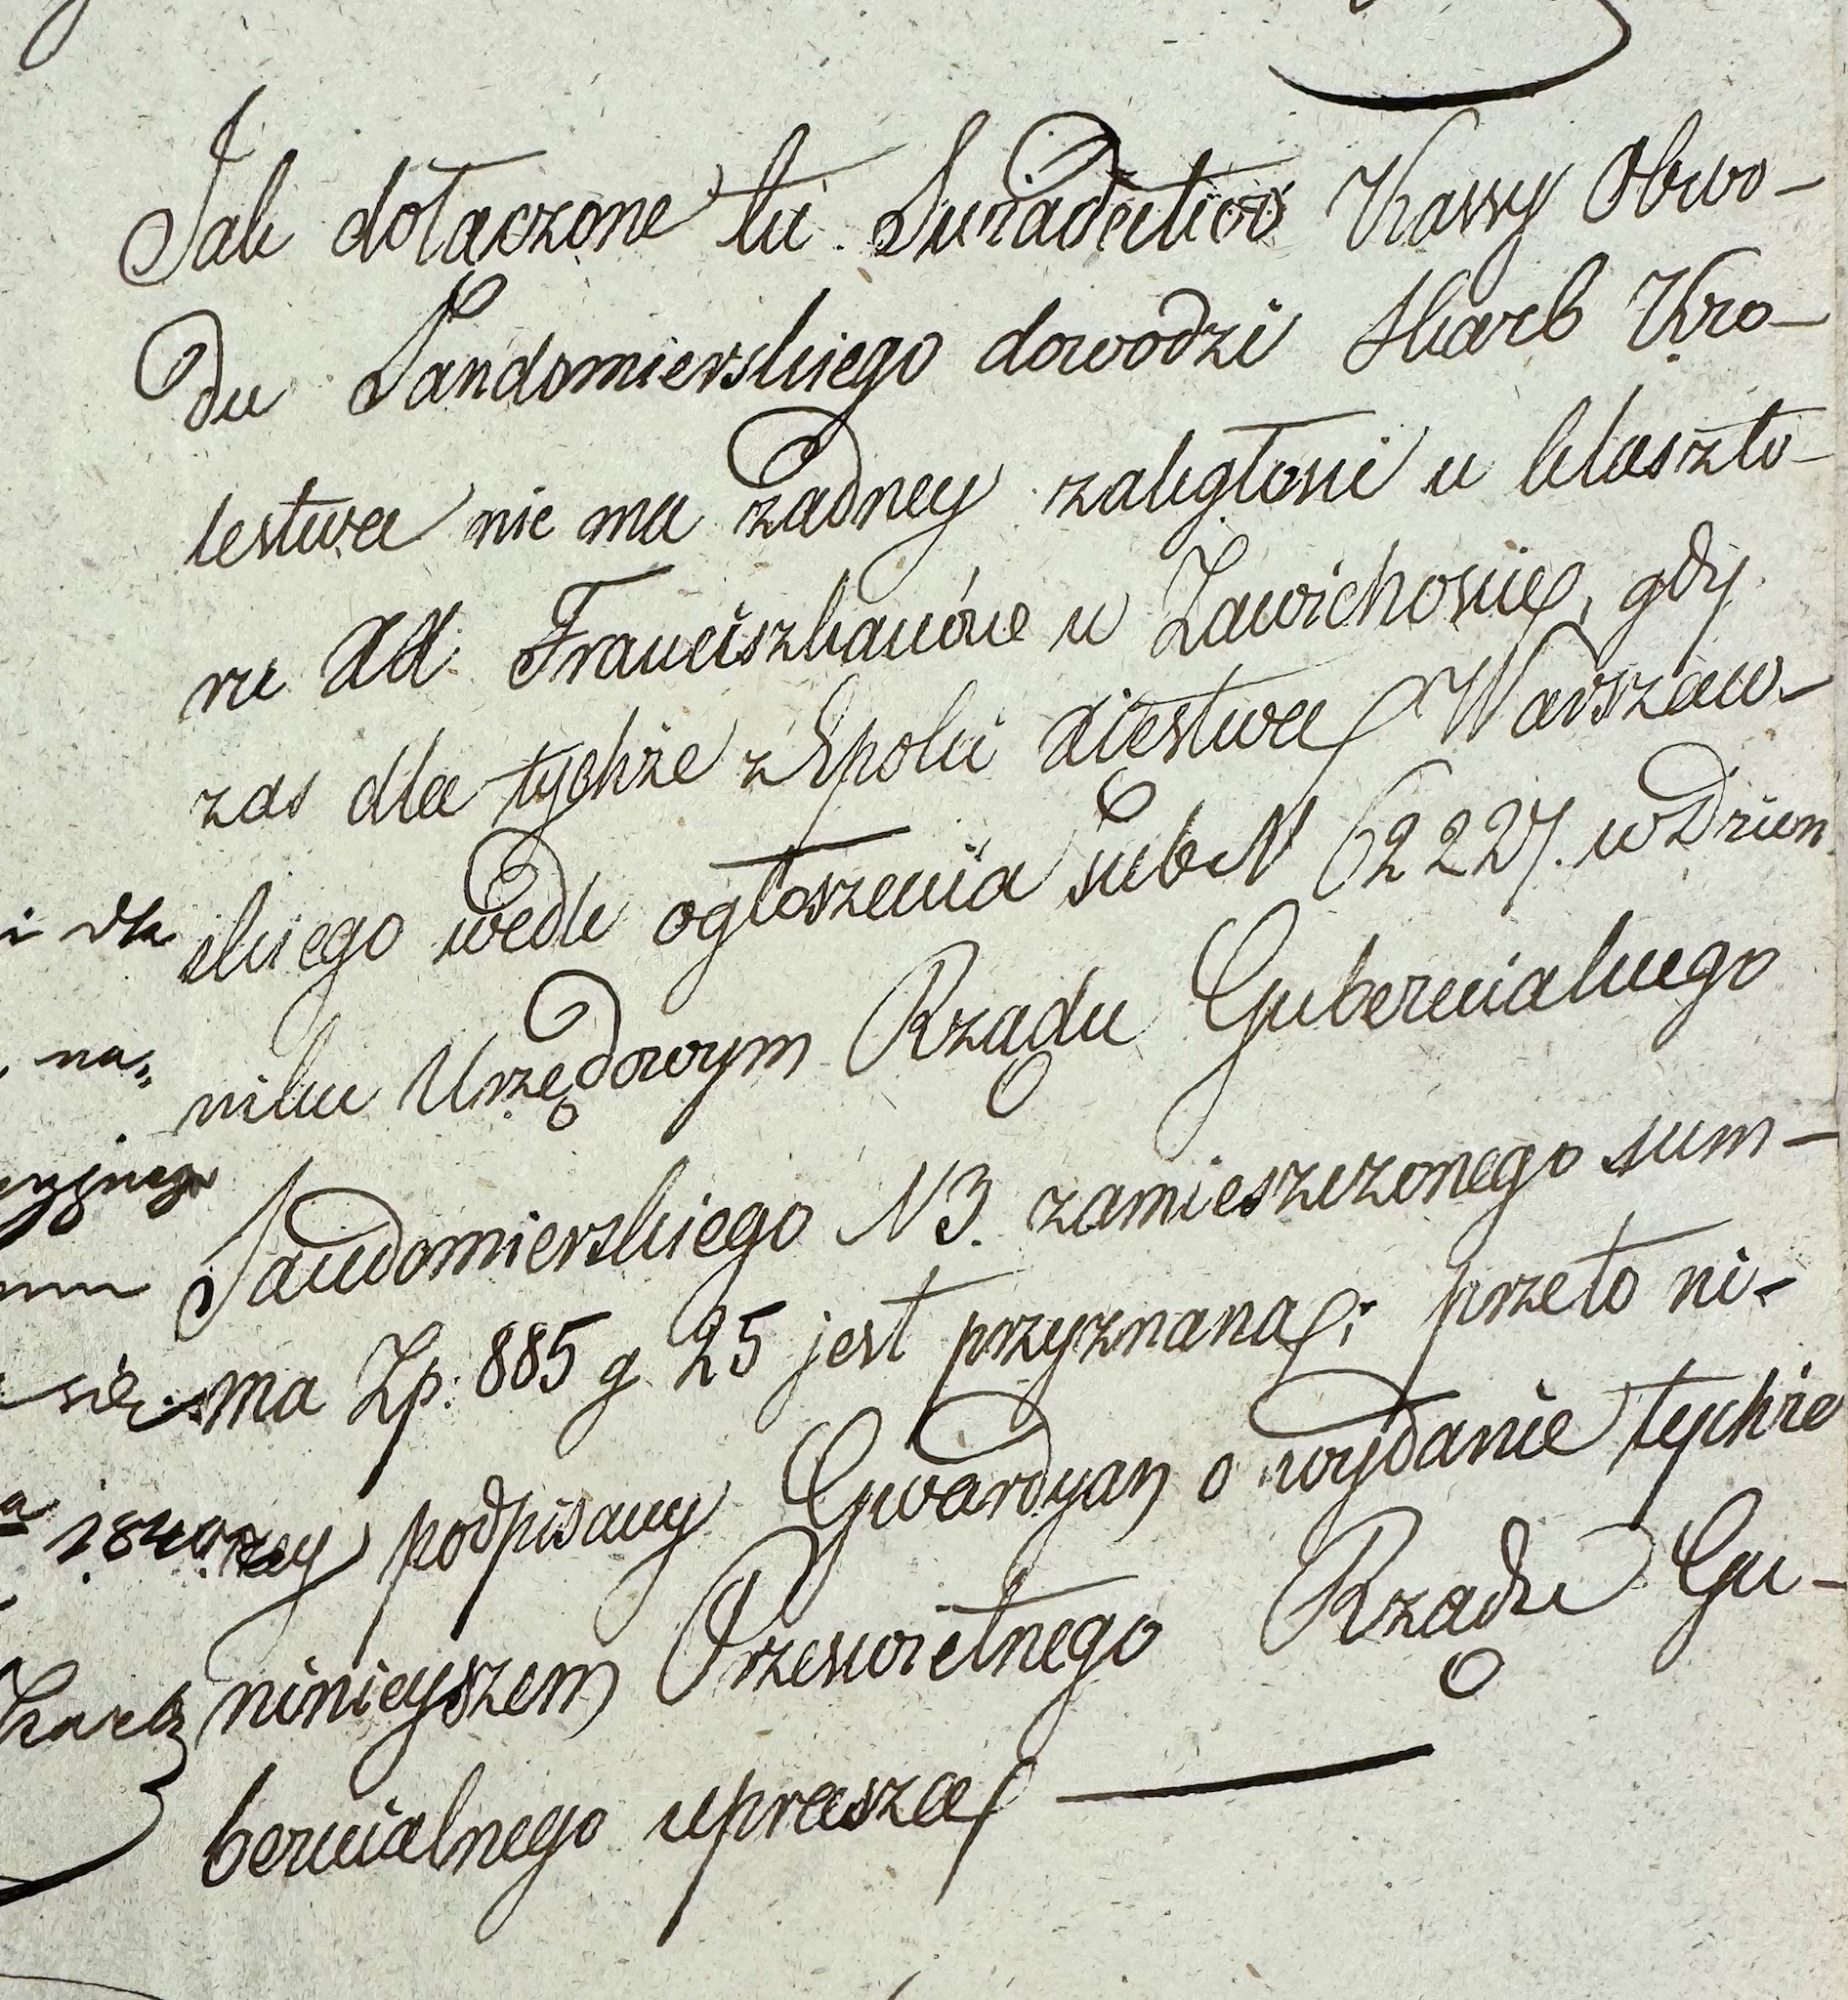 Jak dołączone tu Swiadectwo Kassy Obwo-
du Sandomierskiego dowodzi Skarb Kro-
lestwa nie ma żadney zaległosci u klaszto-
ru XX. Franciszkanów w Zawichoscie, gdy
zas dla tychże z Epoki Xiestwa Warszaw-
i dla skiego wedle ogłoszenia sub N 62227. w Dzien
na„ niku Urzędowym Rządu Gubernialnego
Sandomierskiego N 3. zamieszczonego sum-
się ma Zp: 885 g 25 jest przyznana; przeto ni-
1840 zey podpisany Gwardyan o wydanie tychże
ninieyszem Przeswietnego Rządu Gu-
bernialnego uprasza —